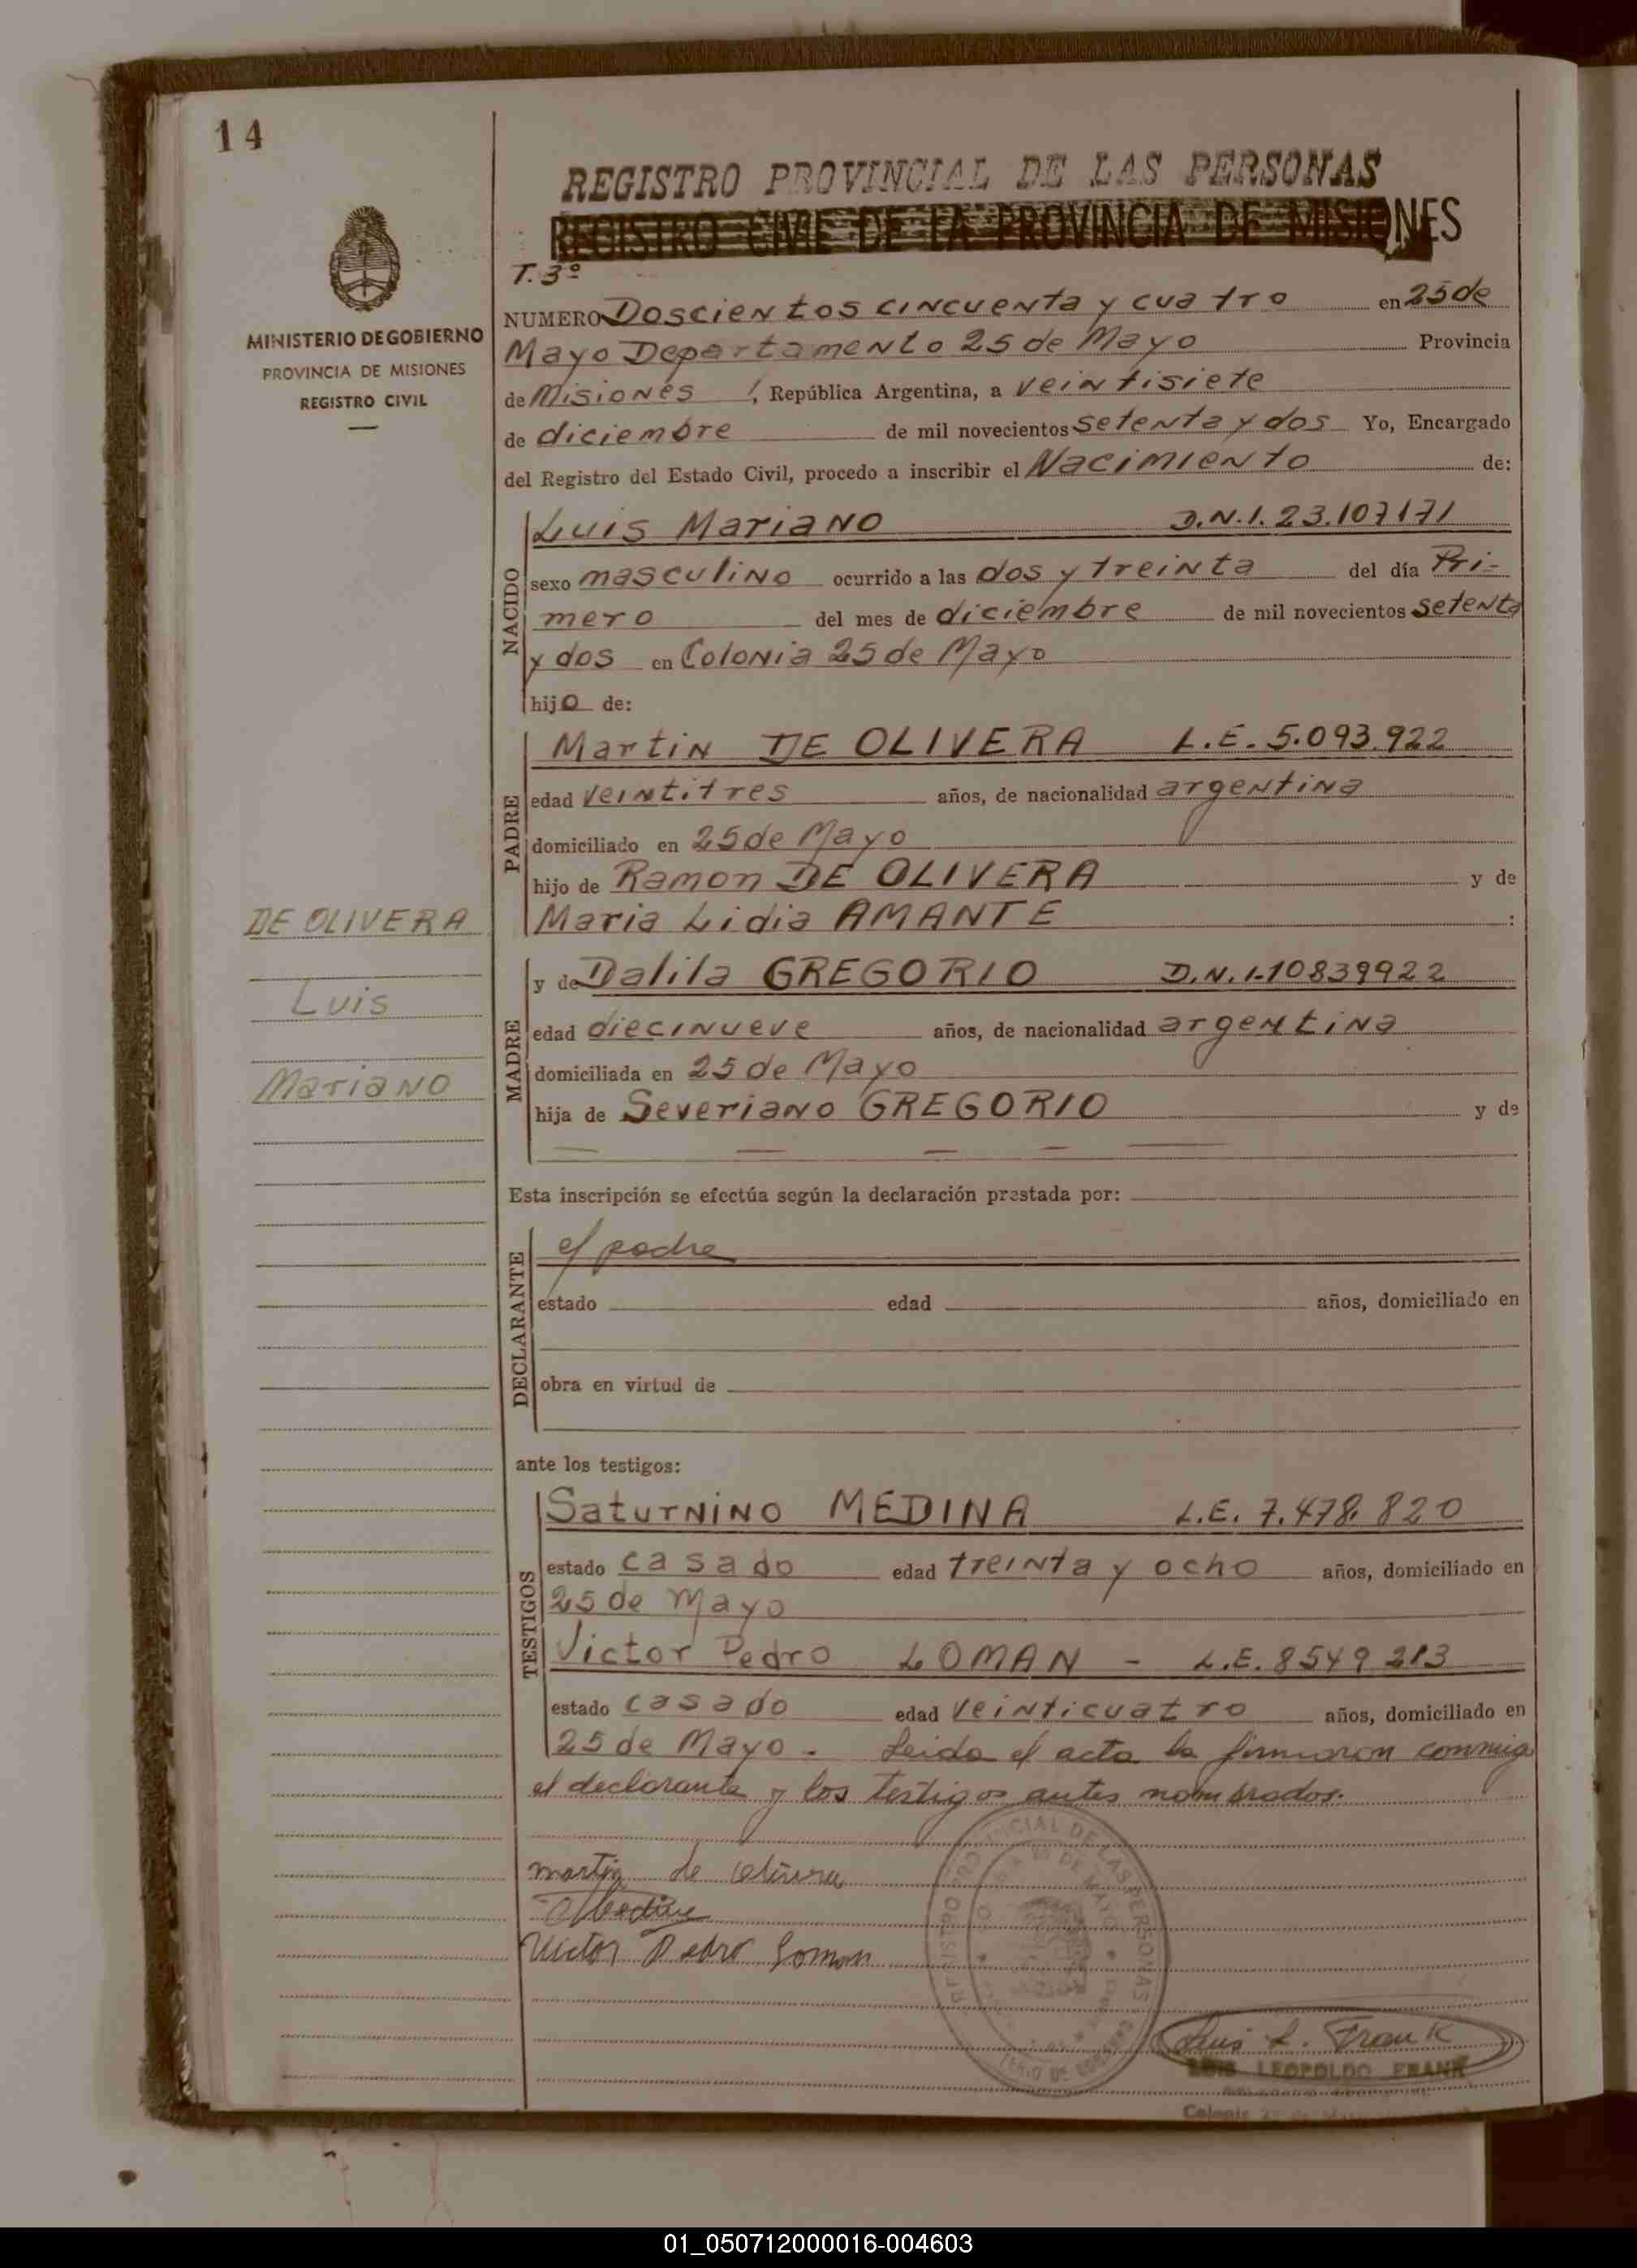 14
MINISTERIO DE GOBIERNO
PROVINCIA DE MISIONES
REGISTRO CIVIL
DE OLIVERA
Luis
Mariano
REGISTRO PROVINCIAL DE LAS PERSONAS
REGISTRO CIVIL DE LA PROVINCIA DE MISIONES
T. 3º
NUMERO Doscientos cincuenta y cuatro en 25 de
Mayo Departamento 25 de Mayo Provincia
de Misiones, República Argentina, a veintisiete
de diciembre de mil novecientos setenta y dos Yo, Encargado
del Registro del Estado Civil, procedo a inscribir el Nacimiento de:
NACIDO
Luis Mariano D.N.I. 23.107171
sexo masculino ocurrido a las dos y treinta del día Pri-
mero del mes de diciembre de mil novecientos setenta
y dos en Colonia 25 de Mayo
hijo de:
PADRE
Martin DE OLIVERA L.E. 5.093.922
edad veintitres años, de nacionalidad argentina
domiciliado en 25 de Mayo
hijo de Ramon DE OLIVERA y de
Maria Lidia AMANTE :
MADRE
y de Dalila GREGORIO D.N.I. 10839922
edad diecinueve años, de nacionalidad argentina
domiciliada en 25 de Mayo
hija de Severiano GREGORIO y de
— — — — —
Esta inscripción se efectúa según la declaración prestada por:
DECLARANTE
el padre
estado edad años, domiciliado en
obra en virtud de
ante los testigos:
TESTIGOS
Saturnino MEDINA L.E. 7.478.820
estado casado edad treinta y ocho años, domiciliado en
25 de Mayo
Victor Pedro LOMAN - L.E. 8549213
estado casado edad veinticuatro años, domiciliado en
25 de Mayo - Leida el acta la firmaron conmigo
el declarante y los testigos antes nombrados.
martin de olivera
Victor Pedro Loman
Luis L. Frank
LUIS LEOPOLDO FRANK
Colonia 25 de Mayo
01_050712000016-004603